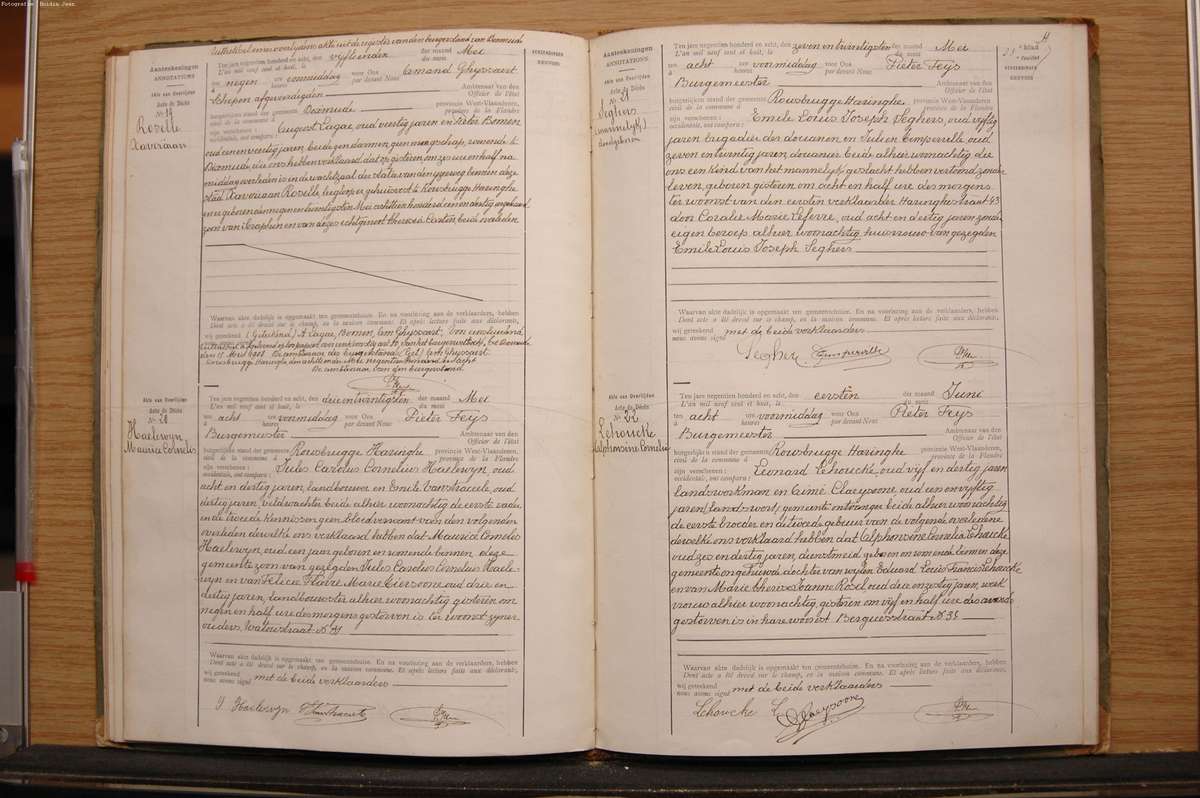 Fotografie : Buidin Jean
Uittreksel eener overlijdens akte uit de registers van den burgerstand van Dixmude
Aanteekeningen
ANNOTATIONS
Akte van Overlijden
Acte de Décès
№ 19
Roselle
Xaveriaan
Ten jare negentien honderd en acht, den vijftienden der maand Mei
L'an mil neuf cent et huit, le du mois
ten negen ure voormiddag voor Ons Amand Ghyssaert
à heures par devant Nous
Schepen afgeveerdigden Ambtenaar van den
Officier de l'état
burgerlijken stand der gemeente Dixmude provincie West-Vlaanderen,
civil de la commune d province de la Flandre
zijn verschenen: August Lagae, oud veertig jaren en Pieter Bomen
occidentale, ont comparu:
oud een en veertig jaren, beide gendarmen, geen maagschap, wonende te
Dixmude, die ons hebben verklaard dat op gisteren, om zes ure en half na
middag overleden is in de wachtzaal der statie van den ijzerweg bennen deze
stad Xaveriaan Roselle, leeglooper, gehuisvest te Rousbrugge Haringhe
en er geboren den negen en twintigsten Mei achttien honderd een en dertig, ongehuwd
zoon van Seraphien en van dezes echtgenoot Theresia Carton, beide overleden
Waarvan akte dadelijk is opgemaakt ten gemeentehuize. En na voorlezing aan de verklaarders, hebben
Dont acte a été dressé sur le champ, en la maison commune. Et après lecture faite aux déclarants,
wij geteekend (Geteekend) A Lagae, Bomen, Am Ghyssaert. Voor eensluidend
nous avons signé
Dixmude
den 15 Mei 1908 De ambtenaar van den burgerstand (Get) Am Ghyssaert
Rousbrugge Haringhe den achttienden Mei negentien honderd en acht
De ambtenaar van den burgerstand
Akte van Overlijden
Acte de Décès
№ 20
Haelewyn
Mauricia Cornelis
Ten jare negentien honderd en acht, den drieentwintigsten der maand Mei
L'an mil neuf cent et huit, le du mois
ten acht ure voormiddag voor Ons Pieter Feys
à heures par devant Nous
Burgemeester Ambtenaar van den
Officier de l'état
burgerlijken stand der gemeente Rousbrugge Haringhe provincie West-Vlaanderen,
civil de la commune à province de la Flandre
zijn verschenen: Jules Carolus Cornelius Haelewyn, oud
occidentale, ont comparu:
acht en dertig jaren, landbouwer en Emile Vanstraceele, oud
dertig jaren, veldwachter beide alhier woonachtig de eerste vader
en de tweede kennis en geen bloedverwant van den volgenden
overleden dewelke ons verklaard hebben dat Mauricia Cornelis
Haelewyn, oud een jaar geboren en wonende bennen deze
gemeente zoon van gezegden Jules Carolus Cornelius Haele-
wyn en van Felicie Flavie Marie Ciersoone oud drie en
dertig jaren, landbouwster alhier woonachtig gisteren om
negen en half ure des morgens gestorven is ter woonst zyner
ouders, Watoustraat №
Waarvan akte dadelijk is opgemaakt ten gemeentehuize. En na voorlezing aan de verklaarders, hebben
Dont acte a été dressé sur le champ, en la maison commune. Et après lecture faite aux déclarants,
wij geteekend met de beide verklaarders
nous avons signé
J. Haelewyn
VERZENDINGEN
RENVOIS
Aanteekeningen
ANNOTATIONS
Akte van Overlijden
Acte de Décès
№ 21
Seghers
(mannelijk)
doodgeboren
11
blad
feuillet
VERZENDINGEN
RENVOIS
Ten jare negentien honderd en acht, den zeven en twintigsten der maand Mei
L'an mil neuf cent et huit, le du mois
ten acht ure voormiddag voor Ons Pieter Feys
à heures par devant Nous
Burgemeester Ambtenaar van den
Officier de l'état
burgerlijken stand der gemeente Rousbrugge Haringhe provincie West-Vlaanderen,
civil de la commune à province de la Flandre
zijn verschenen: Emile Louis Joseph Seghers, oud vijftig
occidentale, ont comparu:
jaren brigadier der douanen en Julien Gemperville oud
zeven en twintig jaren, douanier beide alhier woonachtig die
ons een kind van het mannelijk geslacht hebben vertoond zonder
leven, geboren gisteren om acht en half ure des morgens
ter woonst van den eersten verklaarder Haringhestraat 43
don Coralie Marie Lefevre, oud acht en dertig jaren zonder
eigen beroep alhier woonachtig, huisvrouw van gezegden
Emile Louis Joseph Seghers
Waarvan akte dadelijk is opgemaakt ten gemeentehuize. En na voorlezing aan de verklaarders, hebben
Dont acte a été dressé sur le champ, en la maison commune. Et après lecture faite aux déclarants,
wij geteekend met de beide verklaarders
nous avons signé
Seghers Gemperville
Akte van Overlijden
Acte de Décès
№ 22
Lehoucke
Alphonsine Cornelie
Ten jare negentien honderd en acht, den eersten der maand Juni
L'an mil neuf cent et huit, le du mois
ten acht ure voormiddag voor Ons Pieter Feys
à heures par devant Nous
Burgemeester Ambtenaar van den
Officier de l'état
burgerlijken stand der gemeente Rousbrugge Haringhe provincie West-Vlaanderen,
civil de la commune à province de la Flandre
zijn verschenen: Leonard Lehoucke, oud vijf en dertig jaren
occidentale, ont comparu:
landswerkman en Aimé Claeysoone, oud een en vijftig
jaren, gemeente ontvanger beide alhier woonachtig
de eerste broeder en de tweede gebuur van de volgende overledene
dewelke ons verklaard hebben dat Alphonsine Cornelie Lehoucke
oud zes en dertig jaren, dienstmeid geboren en wonende binnen deze
gemeente ongehuwde dochter van wijlen Eduard Louis Francis Lehoucke
en van Marie Theresia Joanna Rosel oud drie en zestig jaren, werk
vrouw alhier woonachtig, gisteren om vijf en half ure des avonds
gestorven is in hare woonst Berguesstraat № 35
Waarvan akte dadelijk is opgemaakt ten gemeentehuize. En na voorlezing aan de verklaarders, hebben
Dont acte a été dressé sur le champ, en la maison commune. Et après lecture faite aux déclarants,
wij geteekend met de beide verklaarders
nous avons signé
Lehoucke L Claeysoone